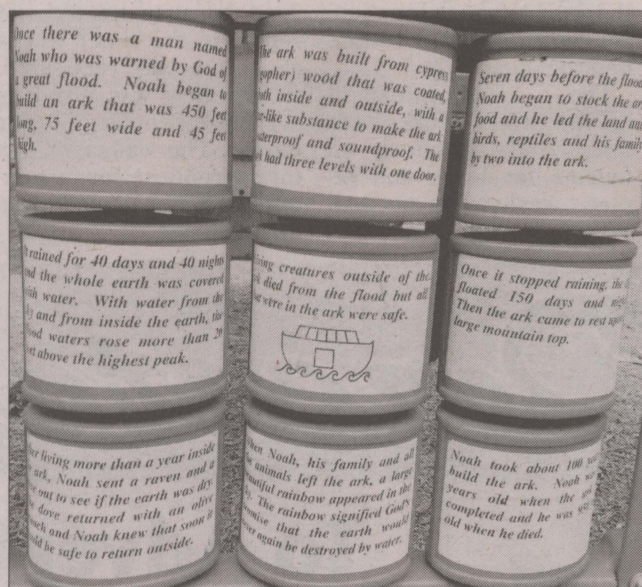 Once there was a man named
Noah who was warned by God of
a great flood. Noah began to
build an ark that was 450 feet
long, 75 feet wide and 45 feet
high.
The ark was built from cypress
(gopher) wood that was coated,
both inside and outside, with a
tar-like substance to make the ark
waterproof and soundproof. The
ark had three levels with one door.
Seven days before the flood
Noah began to stock the ark
food and he led the land
birds, reptiles and his family
by two into the ark.
It rained for 40 days and 40 nights
and the whole earth was covered
with water. With water from the
sky and from inside the earth, the
flood waters rose more than 20
feet above the highest peak.
Living creatures outside of the
ark died from the flood but all
that were in the ark were safe.
Once it stopped raining, the
floated 150 days and nights
Then the ark came to rest upon
large mountain top.
After living more than a year inside
ark, Noah sent a raven and a
dove out to see if the earth was dry.
dove returned with an olive
branch and Noah knew that soon it
would be safe to return outside.
When Noah, his family and all
the animals left the ark, a large
beautiful rainbow appeared in the
sky. The rainbow signified God's
promise that the earth would
never again be destroyed by water.
Noah took about 100 years
build the ark. Noah was
years old when the
completed and he was
old when he died.